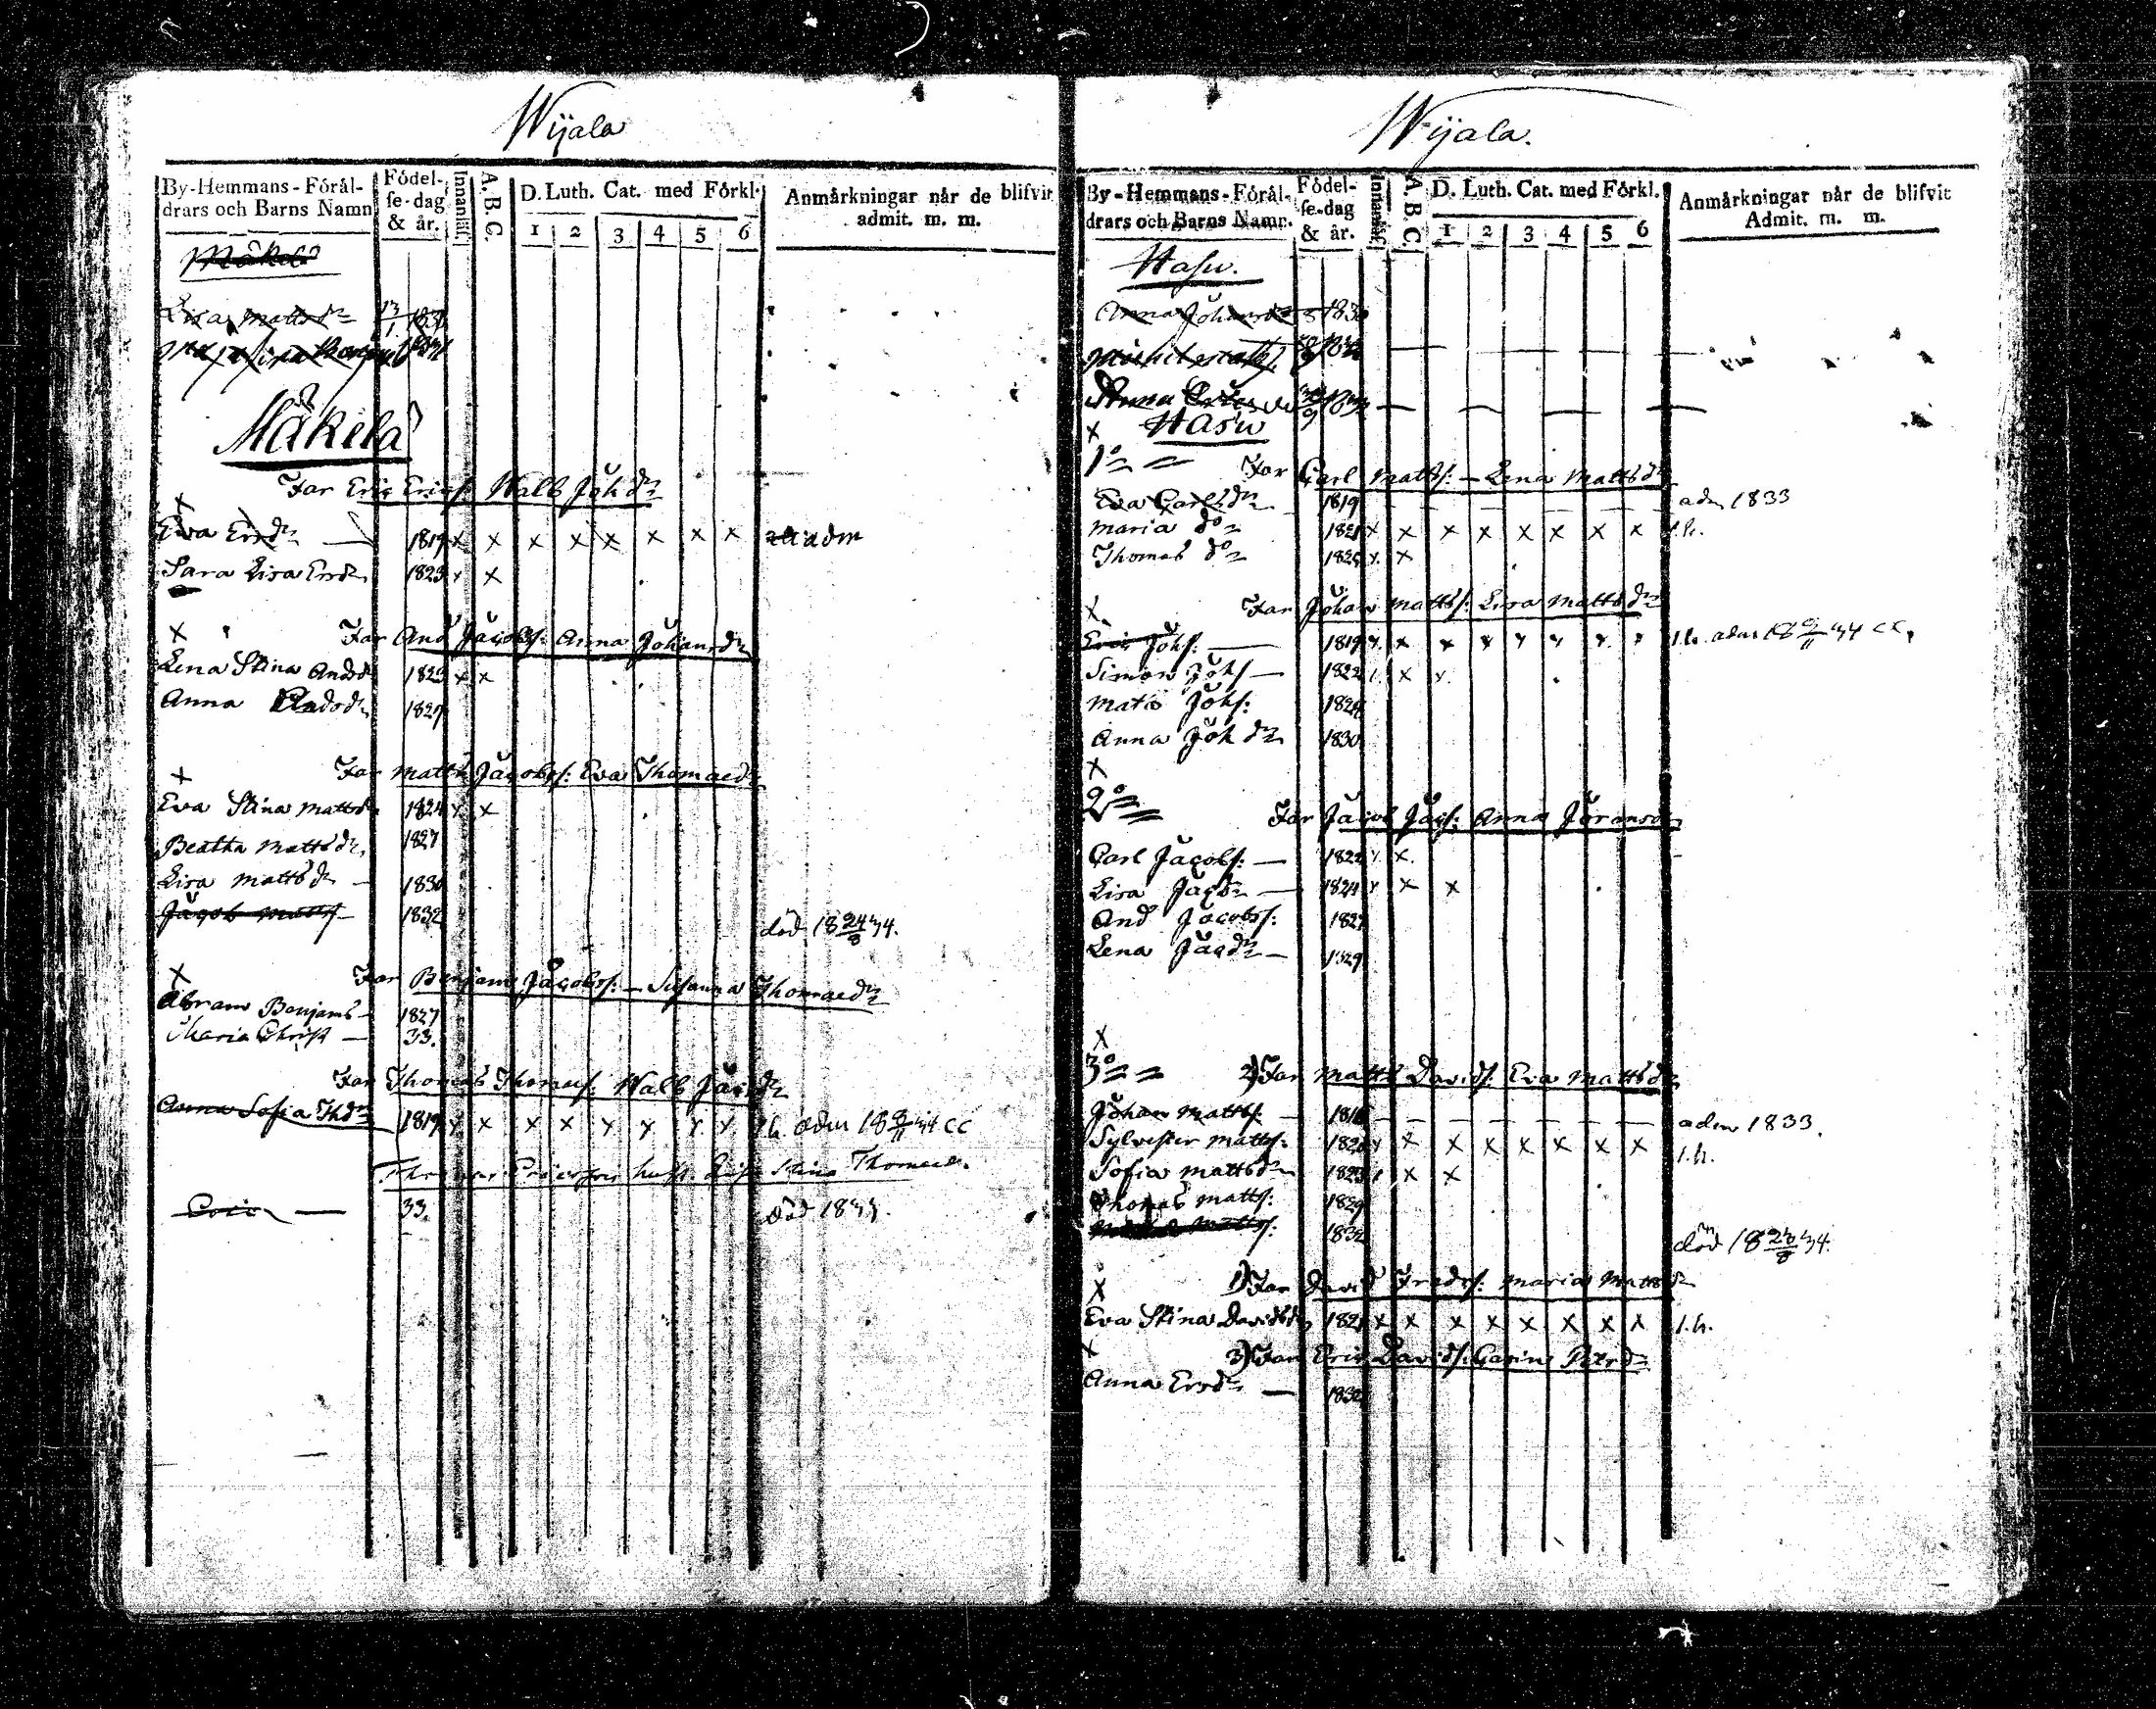 Wijala
By-Hemmans-Förål-
drars och Barns Namn
Födel-
se-dag
& år.
Innanläs.
A. B. C.
D. Luth. Cat. med Förkl.
1 2 3 4 5 6
Anmårkningar når de blifvit
admit. m. m.
Mäkelä
Lisa Mattsdr
Mäkelä
Far Eric Ericss: Walb Joh dr
x
Eva Ersdr — 1819 x x x x x x x x adm
Sara Lisa Ersdr 1823 x x
x Far And Jacobss: Anna Johansdr
Lena Stina Andsdr 1823 x x
Anna Andsdr 1827
x Far Matts Jacobss: Eva Thomaedr
Eva Stina Mattsdr 1824 x x
Beatha Mattsdr 1827
Lisa Mattsdr — 1830
Jacob Mattss — 1832 död 18 24/8 34.
x Far Benjam Jacobss: — Susanna Thomaedr
Abram Benjams — 1827
Maria Christ — 33.
Far Thomas Thomass: Walb Jacdr
Anna Sofia Thdr 1819 x x x x x x x x adm 18 9/11 34 cc
Stina Thomaedr
Eric — 33. död 1833.
Wijala.
By-Hemmans-Förål-
drars och Barns Namn.
Födel-
se-dag
& år.
Innanläs.
A. B. C.
D. Luth. Cat. med Förkl.
1 2 3 4 5 6
Anmårkningar når de blifvit
Admit. m. m.
Hasu.
Anna Johansdr
Michel Matts
Anna
x Hasu
1o Far Carl Mattss: — Lena Mattsdr
Eva Carlsdr 1819 — — — — — — adm 1833
Maria do 1821 x x x x x x x x l.h.
Thomas do 1825 x x
x Far Johan Mattss: Lisa Mattsdr
Eric Johs: — 1819 x x x x x x x x l.h. adm 18 9/11 34 cc,
Simon Johs — 1822 x x x
Matts Johs: 1828
Anna Joh dr 1830
x
2o Far Jacob Jacs: Anna Joransdr
Carl Jacobs: — 1822 x x
Lisa Jacdr — 1824 x x x
And Jacobss: 1827
Lena Jacdr — 1829
x
3o 2) Far Matts Davids: Eva Mattsdr
Johan Mattss: — 1818 — — — — — — — adm 1833.
Sylvester Mattss: 1820 x x x x x x x x l.h.
Sofia Mattsdr 1823 x x x
Thomas Mattss: 1829
Mattss: 1832 död 18 28/8 34.
x 1) Far David Fredrs: Maria Mattsdr
Eva Stina Davidsdr 1821 x x x x x x x x l.h.
x 3) Far Eric Davids: Carin Petrdr
Anna Ersdr — 1832